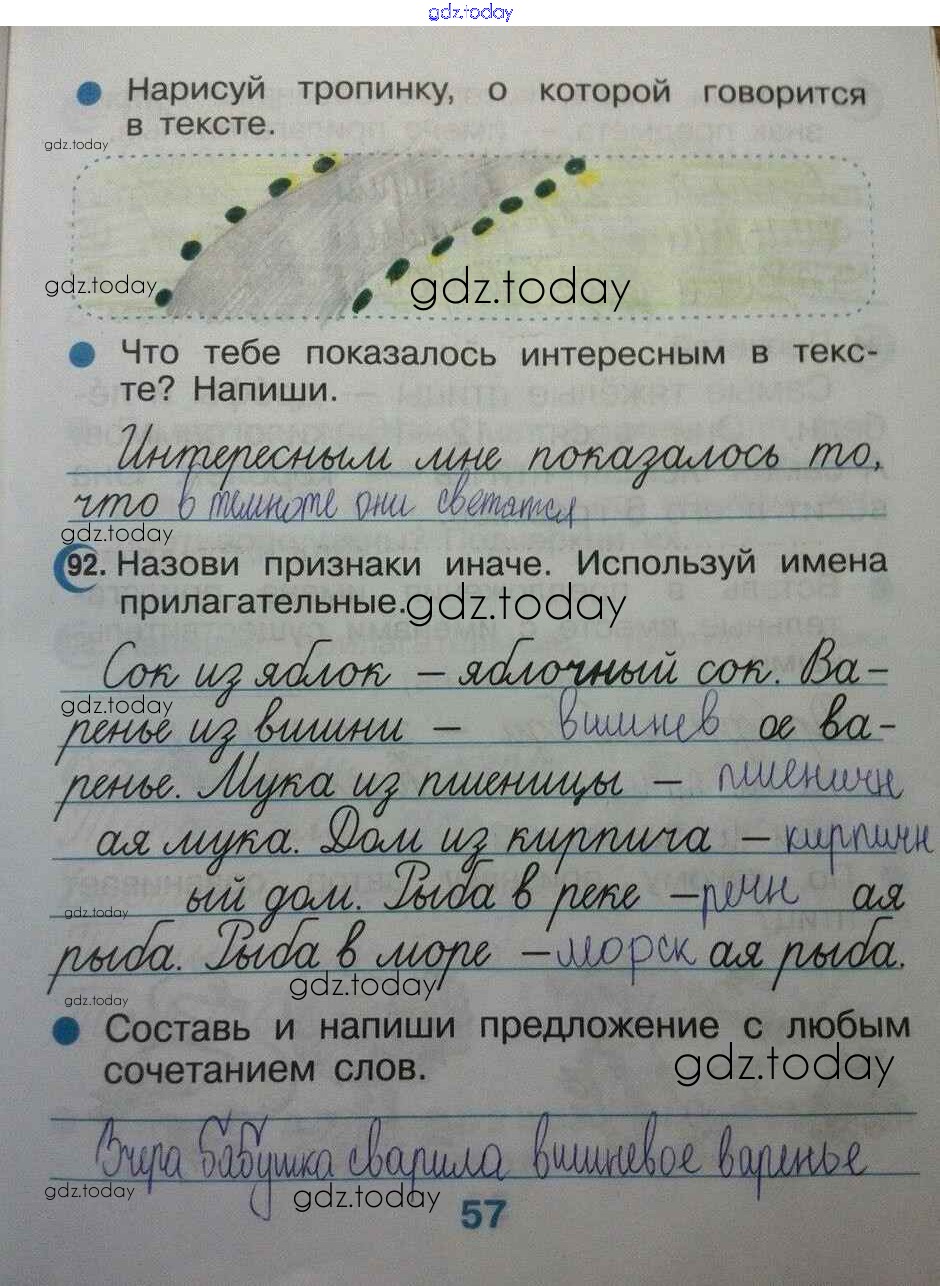 gdz.today
Нарисуй тропинку, о которой говорится
в тексте.
gdz.today
gdz.today
gdz.today
Что тебе показалось интересным в текс-
те? Напиши.
Интересным мне показалось то,
что в темноте они светатся
gdz.today
92. Назови признаки иначе. Используй имена
прилагательные.
gdz.today
Сок из яблок – яблочный сок. Ва-
gdz.today
ренье из вишни – вишнев ое ва-
ренье. Мука из пшеницы – пшеничн
ая мука. Дом из кирпича – кирпичн
ый дом. Рыба в реке – речн ая
gdz.today
рыба. Рыба в море – морск ая рыба.
gdz.today
gdz.today
Составь и напиши предложение с любым
сочетанием слов.
gdz.today
Вчера бабушка сварила вишневое варенье
gdz.today
gdz.today
57